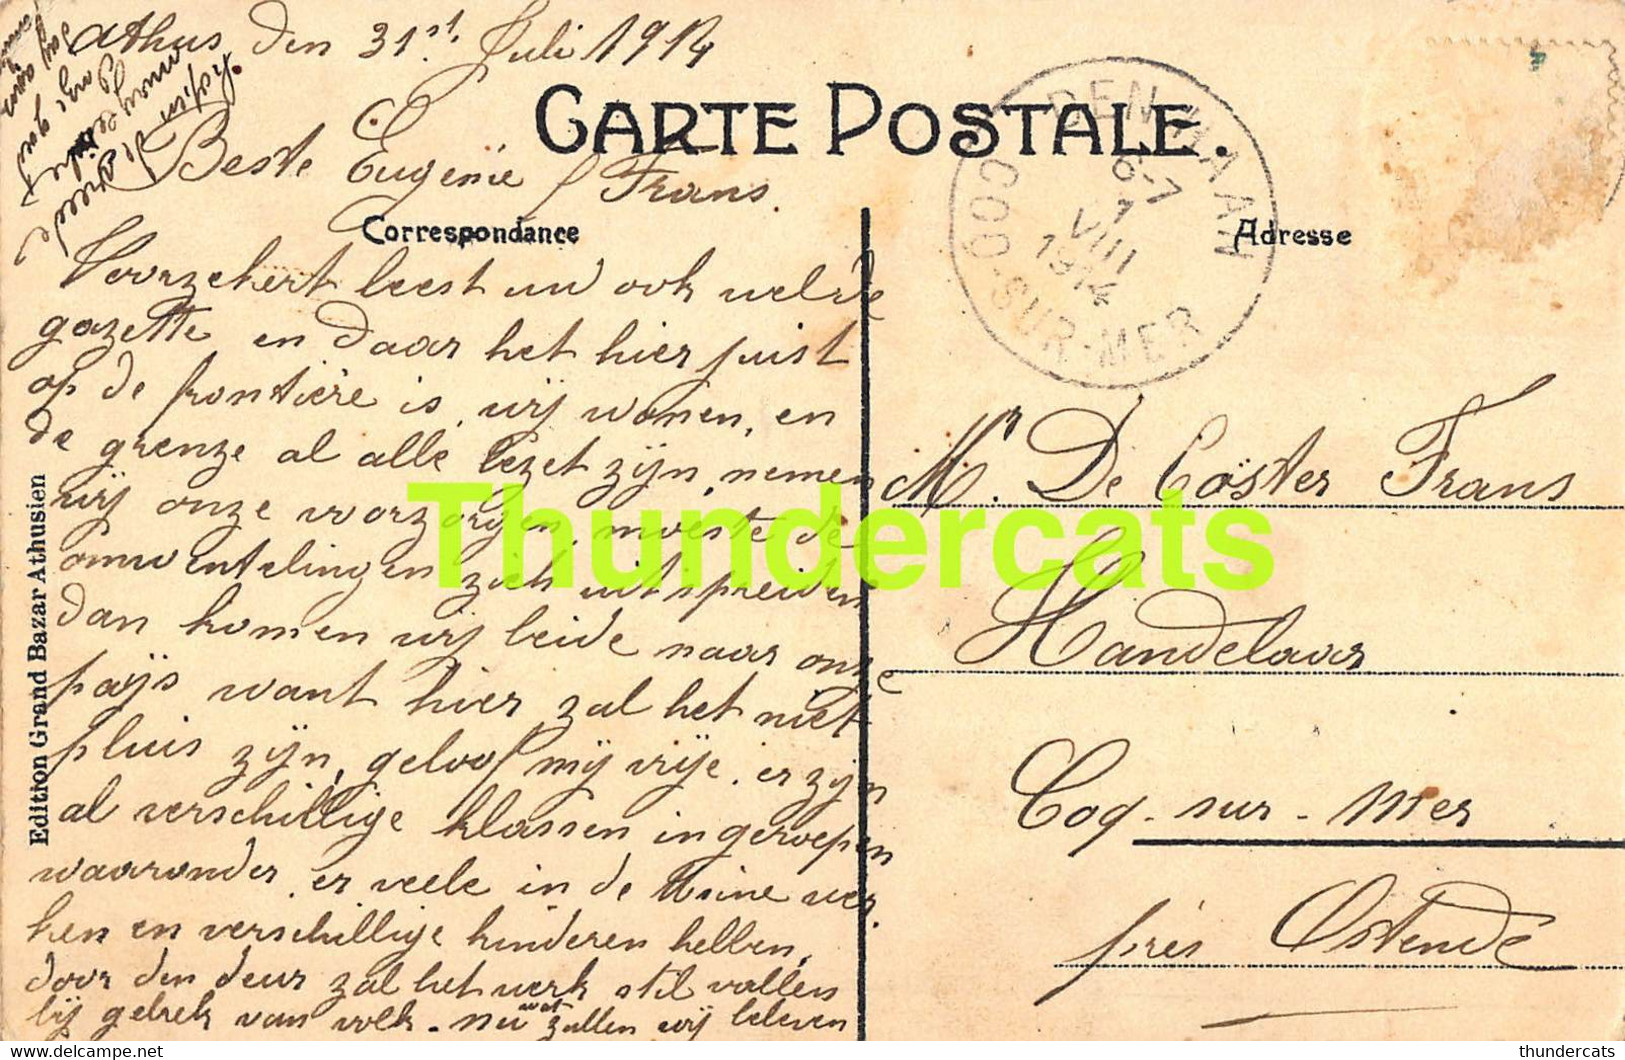 Athus den 31st. Juli 1914
CARTE POSTALE.
Beste Eugenie & Frans.
Correspondance
Adresse
DEN HAAN
6-7
1
VIII
1914
COQ-SUR-MER
Voorzekert leest uw ook wel de
gazette en daar het hier juist
op de frontière is, wij wonen, en
de grenze al alle bezet zijn, nemen
wij onze voorzorgen, moeste de
omwentelingen zich uitspreiden
dan komen wij beide naar onze
pays want hier zal het niet
pluis zijn, geloof mij vrije. er zijn
al verschillige klassen ingeroepen
waaronder er veele in de Usine wer.
ken en verschillige kinderen hebben,
door den deur zal het werk stil vallen
bij gebrek van volk - nu wat zullen wij beleven
Mr. De Cöster Frans
Handelaar
Coq-sur-mer
près Ostende
Edition Grand Bazar Athusien
Thundercats
thundercats